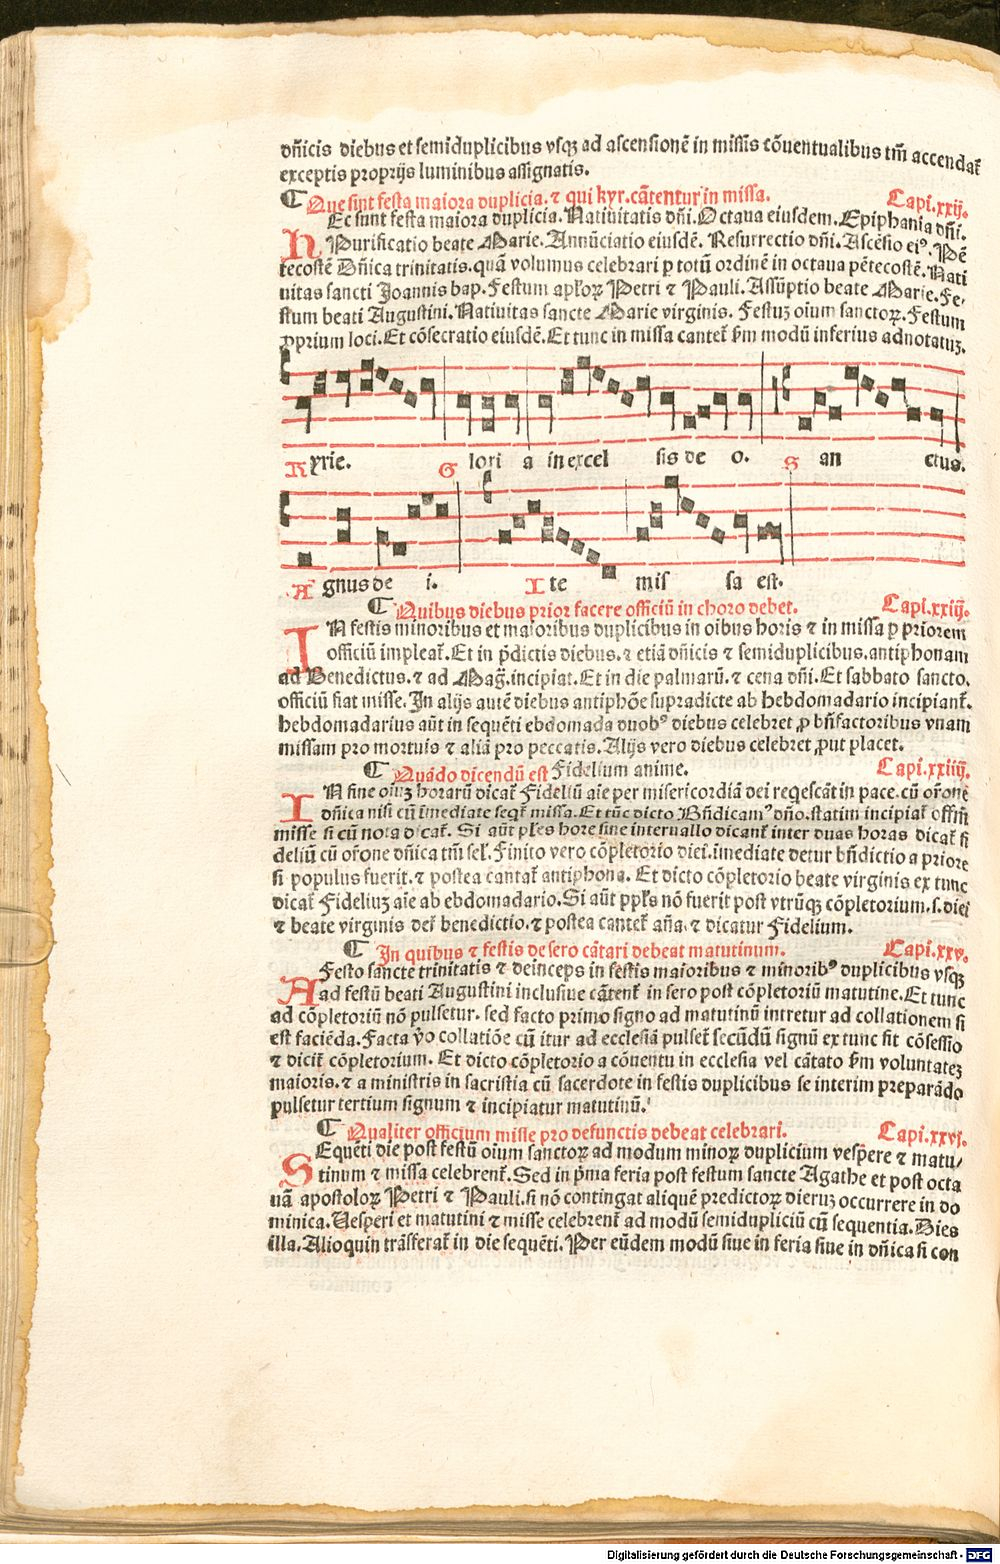 dñicis diebus et semiduplicibus vsqꝫ ad ascensionē in missis cōuentualibus tm̄ accendat̄
exceptis proprijs luminibus assignatis.
¶ Que sint festa maiora duplicia. ⁊ qui kyr. cātentur in missa. Capi. xxij.
HEc sunt festa maiora duplicia. Natiuitatis dñi. Octaua eiusdem. Epiphania dñi.
Purificatio beate Marie. Annūciatio eiusdē. Resurrectio dñi. Ascēsio eiꝰ. Pē
tecostē Dñica trinitatis. quā volumus celebrari ꝑ totū ordinē in octaua pētecostē. Nati
uitas sancti Joannis bap. Festum apl'oꝝ Petri ⁊ Pauli. Assūptio beate Marie. Fe⸗
stum beati Augustini. Natiuitas sancte Marie virginis. Festuꝫ oium sanctoꝝ. Festum
ꝓprium loci. Et cōsecratio eiusdē. Et tunc in missa cantet̄ ẜm modū inferius adnotatuꝫ.
Kyrie. Glori a in excel sis de o. San ctus.
Agnus de i. Ite mis sa est.
¶ Quibus diebus prior facere officiū in choro debet. Capi. xxiij.
IN festis minoribus et maioribus duplicibus in oibus horis ⁊ in missa ꝑ priorem
officiū impleat̄. Et in p̄dictis diebus. ⁊ etiā dñicis ⁊ semiduplicibus. antiphonam
ad Benedictus. ⁊ ad Mag̃. incipiat. Et in die palmarū. ⁊ cena dñi. Et sabbato sancto.
officiū fiat misse. In alijs autē diebus antiphōe supradicte ab hebdomadario incipiant̄.
hebdomadarius aūt in sequēti ebdomada duobꝰ diebus celebret ꝓ bñfactoribus vnam
missam pro mortuis ⁊ aliā pro peccatis. Alijs vero diebus celebret ꝓut placet.
¶ Quādo dicendū est Fidelium anime. Capi. xxiiij.
IN fine oiuꝫ horarū dicat̄ Fideliū aīe per misericordiā dei reqescāt in pace. cū or̄one
dñica nisi cū īmediate seqt̄ missa. Et tūc dicto Bñdicamꝰ dño. statim incipiat̄ offm̄
misse si cū nota dicat̄. Si aūt pl'es hore sine interuallo dicant̄ inter duas horas dicat̄ fi
deliū cū or̄one dñica tm̄ sel'. Finito vero cōpletorio diei. īmediate detur bñdictio a priore
si populus fuerit. ⁊ postea cantat̄ antiphona. Et dicto cōpletorio beate virginis ex tunc
dicat̄ Fideliuꝫ aīe ab ebdomadario. Si aūt ppl's nō fuerit post vtrūqꝫ cōpletorium. s. diei
⁊ beate virginis det̄ benedictio. ⁊ postea cantet̄ aña. ⁊ dicatur Fidelium.
¶ In quibus ⁊ festis de sero cātari debeat matutinum. Capi. xxv.
A Festo sancte trinitatis ⁊ deinceps in festis maioribus ⁊ minoribꝰ duplicibus vsqꝫ
ad festū beati Augustini inclusiue cātent̄ in sero post cōpletoriū matutine. Et tunc
ad cōpletoriū nō pulsetur. sed facto primo signo ad matutinū intretur ad collationem si
est faciēda. Facta v̄o collatiōe cū itur ad ecclesiā pulset̄ secūdū signū ex tunc fit cōfessio
⁊ dicit̄ cōpletorium. Et dicto cōpletorio a cōuentu in ecclesia vel cātato ẜm voluntateꝫ
maioris. ⁊ a ministris in sacristia cū sacerdote in festis duplicibus se interim preparādo
pulsetur tertium signum ⁊ incipiatur matutinū.
¶ Qualiter officium misse pro defunctis debeat celebrari. Capi. xxvj.
SEquēti die post festū oium sanctoꝝ ad modum minoꝝ duplicium vespere ⁊ matu⸗
tinum ⁊ missa celebrent̄. Sed in p̄ma feria post festum sancte Agathe et post octa
uā apostoloꝝ Petri ⁊ Pauli. si nō contingat aliquē predictoꝝ dieruꝫ occurrere in do
minica. Uesperi et matutini ⁊ misse celebrent̄ ad modū semidupliciū cū sequentia. Dies
illa. Alioquin trāsferat̄ in die sequēti. Per eūdem modū siue in feria siue in dñica si con
Digitalisierung gefördert durch die Deutsche Forschungsgemeinschaft - DFG